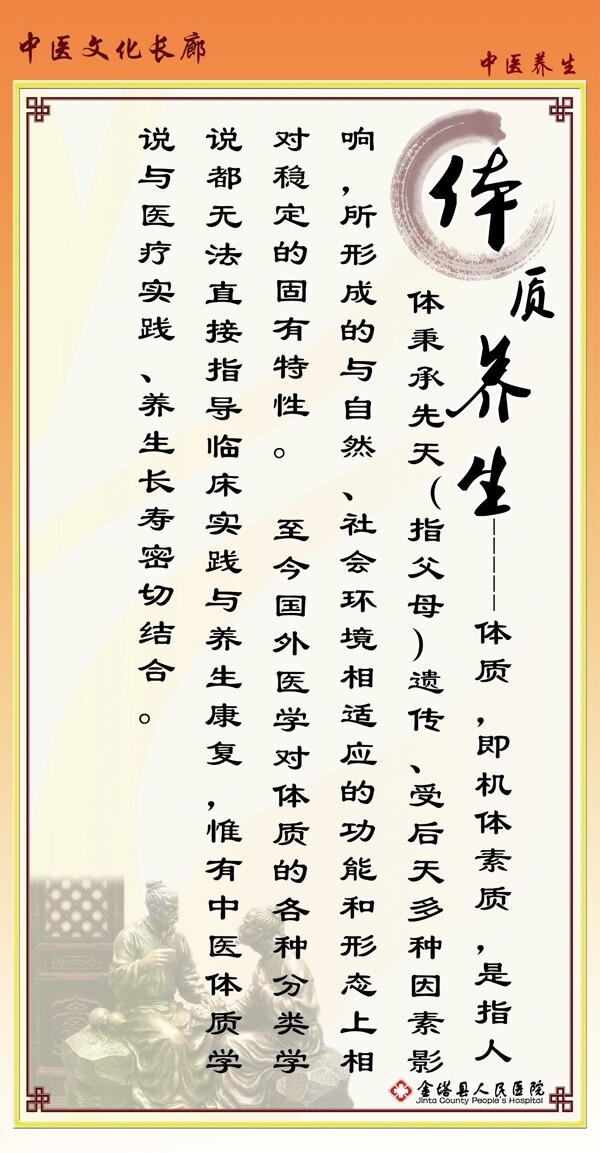 中医文化长廊
中医养生
体质养生
-----体质，即机体素质，是指人
体秉承先天（指父母）遗传、受后天多种因素影
响，所形成的与自然、社会环境相适应的功能和形态上相
对稳定的固有特性。 至今国外医学对体质的各种分类学
说都无法直接指导临床实践与养生康复，惟有中医体质学
说与医疗实践、养生长寿密切结合。
金塔县人民医院
Jinta County People's Hospital